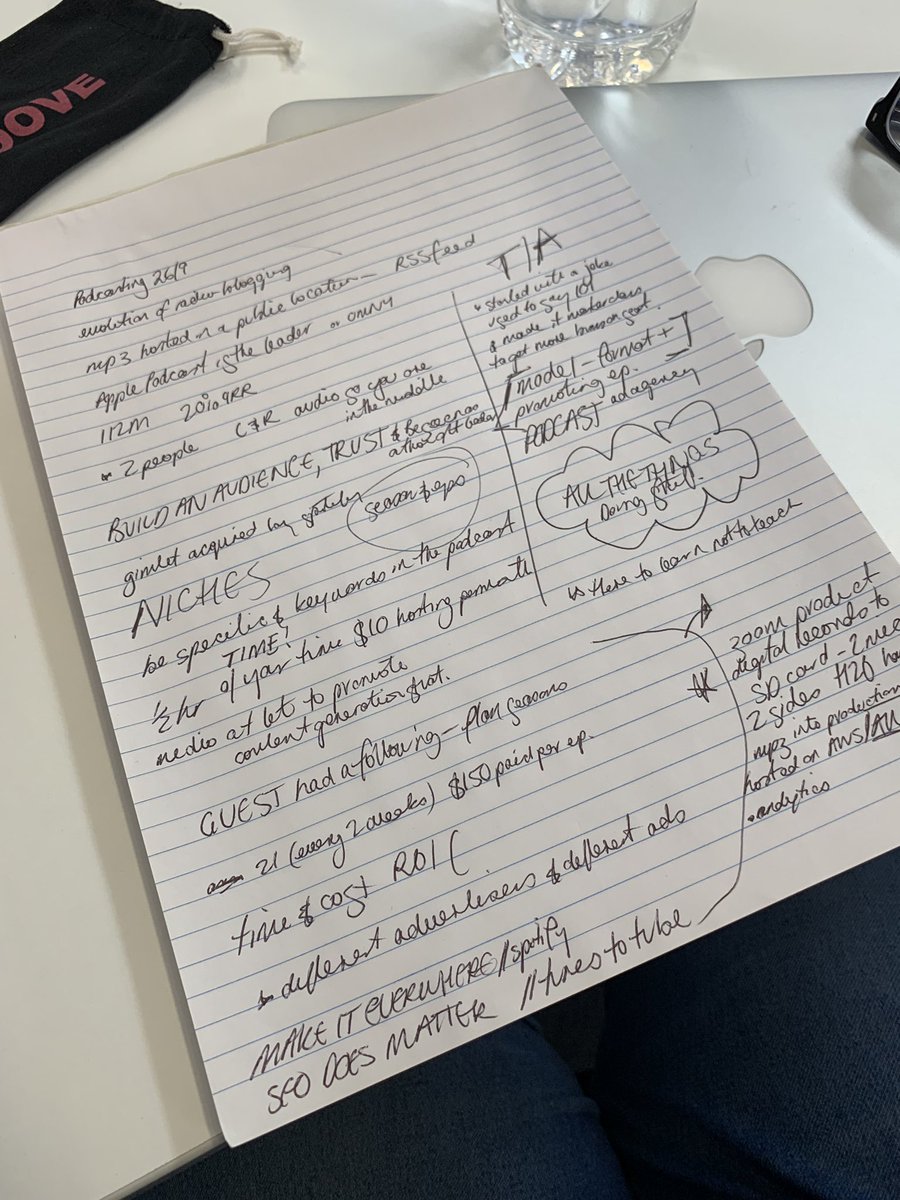 OOVE
Podcasting 26/9
evolution of radio blogging
mp3 hosted in a public location — RSS feed
Apple Podcast is the leader or OMNY
112M
* 2 people audio so you are
in the middle
BUILD AN AUDIENCE, TRUST & become
a thought leader
gimlet acquired by spotify
season & eps
NICHES
be specific & keywords in the podcast
TIME!
½ hr of your time $10 hosting per
media at let to promote
content generation
GUEST had a following — plan seasons
21 (every 2 weeks) $150 paid per ep.
time & cost ROI (
different advertisers & different ads
MAKE IT EVERYWHERE // spotify
SEO DOES MATTER // tunes to tube
T/A
* started with a joke
used to say lot
& made it masterclass
to get more
[model — format + ]
promoting ep.
PODCAST ad agency
ALL THE THINGS
Doing
Here to learn not to teach
* zoom product
digital records to
SD card — 2
2 sides H20
mp3 into production
hosted on AWS/
• analytics